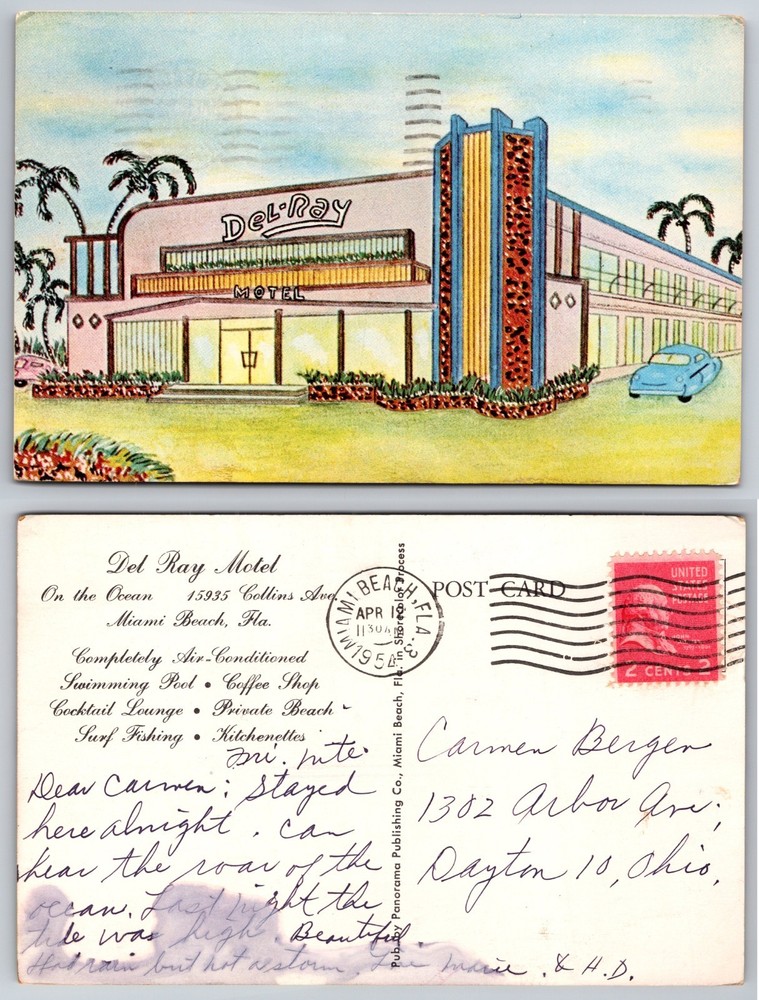 Del-Ray
MOTEL
Del Ray Motel
On the Ocean 15935 Collins Ave.
Miami Beach, Fla.
Completely Air-Conditioned
Swimming Pool • Coffee Shop
Cocktail Lounge • Private Beach
Surf Fishing • Kitchenettes
Fri. nite.
Dear Carmen: Stayed
here alnight. Can
hear the roar of the
ocean. Last night the
tide was high. Beautiful.
Had rain but not a storm. Marie. & H.D.
Pub. by Panorama Publishing Co., Miami Beach, Fla. in Shorecolor Process
MIAMI BEACH, FLA. 3
APR 1
1130 AM
1954
POST CARD
UNITED
STATES
POSTAGE
JOHN
2 CENTS 2
Carmen Bergen
1302 Arbor Ave.,
Dayton 10, Ohio.